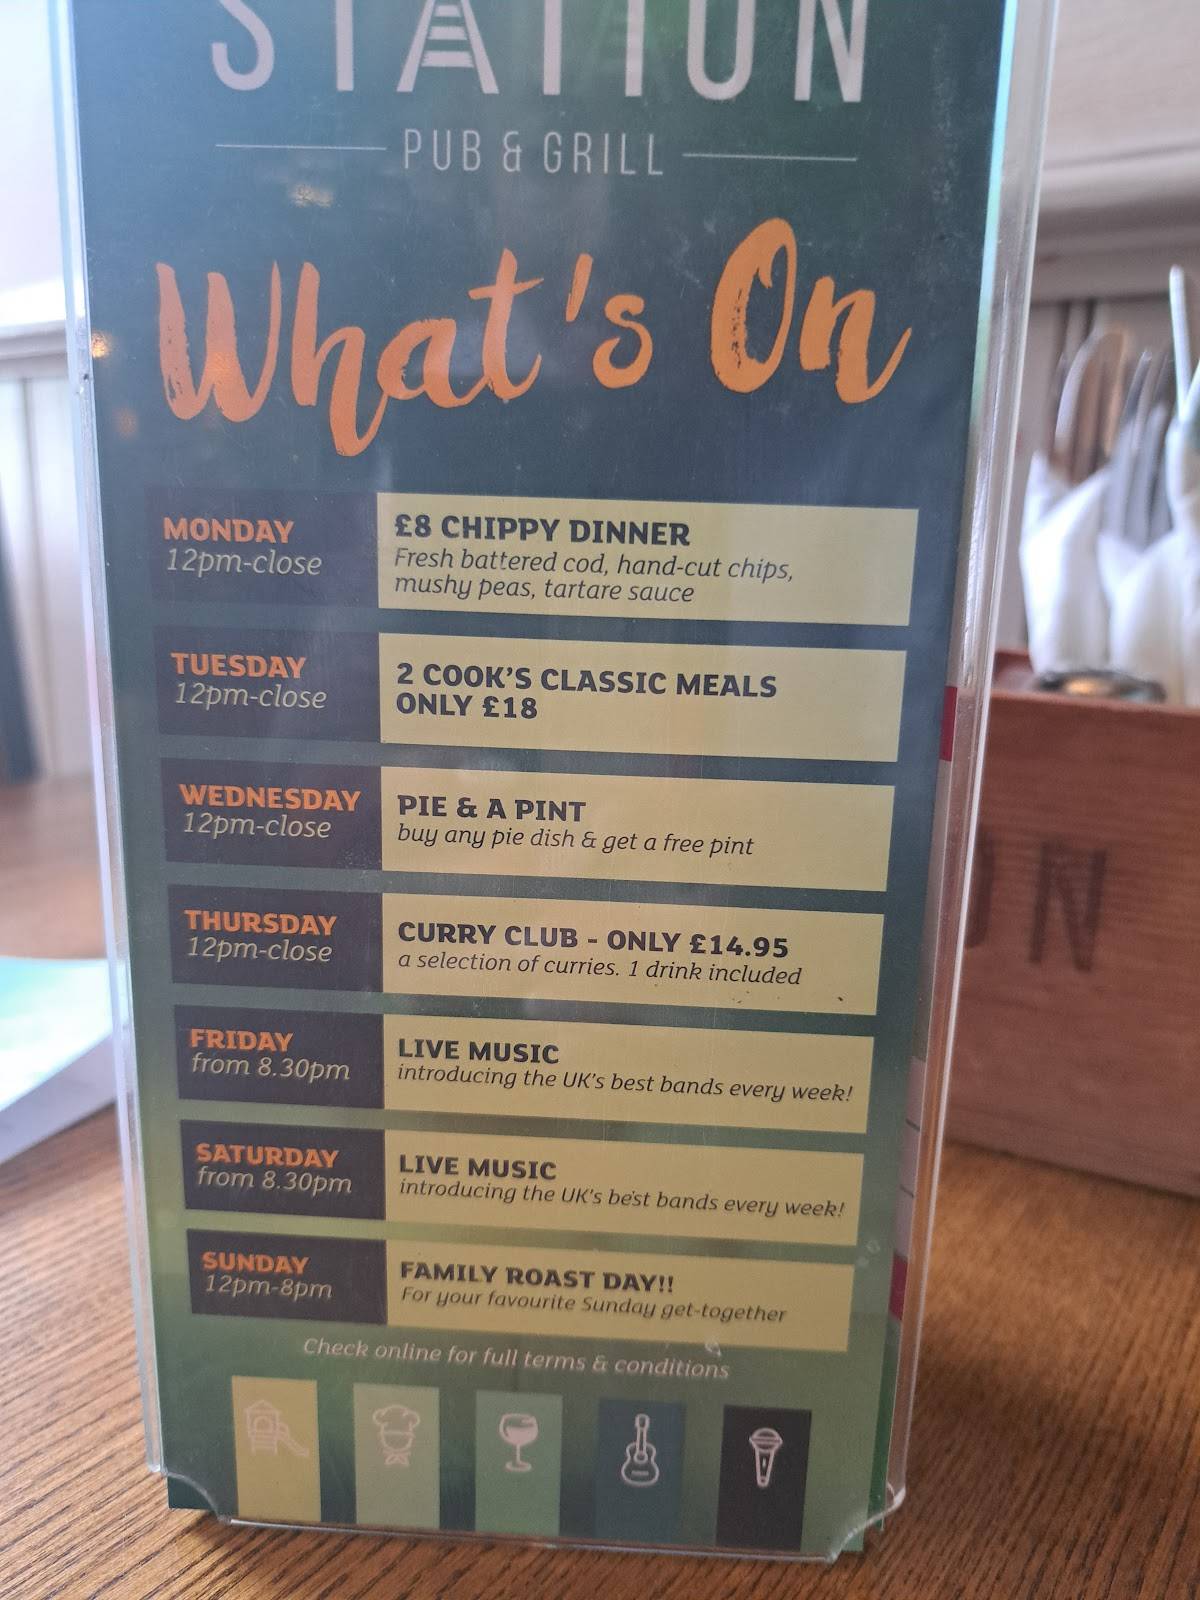 STATION
PUB & GRILL
What's On
MONDAY
12pm-close
£8 CHIPPY DINNER
Fresh battered cod, hand-cut chips,
mushy peas, tartare sauce
TUESDAY
12pm-close
2 COOK'S CLASSIC MEALS
ONLY £18
WEDNESDAY
12pm-close
PIE & A PINT
buy any pie dish & get a free pint
THURSDAY
12pm-close
CURRY CLUB - ONLY £14.95
a selection of curries. 1 drink included
FRIDAY
from 8.30pm
LIVE MUSIC
introducing the UK's best bands every week!
SATURDAY
from 8.30pm
LIVE MUSIC
introducing the UK's best bands every week!
SUNDAY
12pm-8pm
FAMILY ROAST DAY!!
For your favourite Sunday get-together
Check online for full terms & conditions
ON